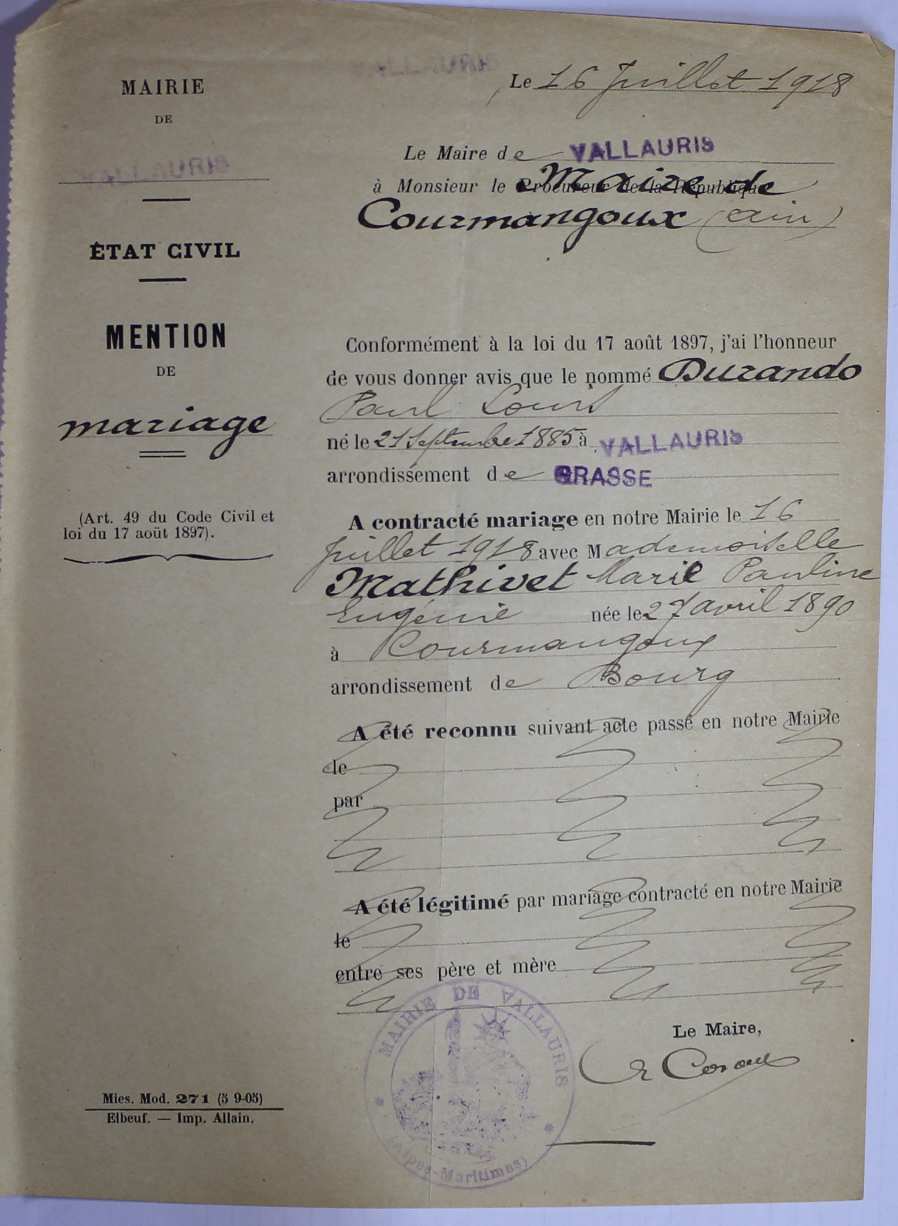 MAIRIE
DE
VALLAURIS
ÉTAT CIVIL
MENTION
DE
mariage
(Art. 49 du Code Civil et
loi du 17 août 1897).
Le 16 Juillet 1918
Le Maire de VALLAURIS
à Monsieur le Procureur de la République Maire de
Courmangoux (Ain)
Conformément à la loi du 17 août 1897, j'ai l'honneur
de vous donner avis que le nommé Durando
Paul Louis
né le 21 Septembre 1885 à VALLAURIS
arrondissement de GRASSE
A contracté mariage en notre Mairie le 16
Juillet 1918 avec Mademoiselle
Mathivet Marie Pauline
Eugénie née le 27 avril 1890
à Courmangoux
arrondissement de Bourg
A été reconnu suivant acte passé en notre Mairie
le
par
A été légitimé par mariage contracté en notre Mairie
le
entre ses père et mère
MAIRIE DE VALLAURIS
(Alpes-Maritimes)
Le Maire,
Mies. Mod. 271 (5 9-05)
Elbeuf. — Imp. Allain.